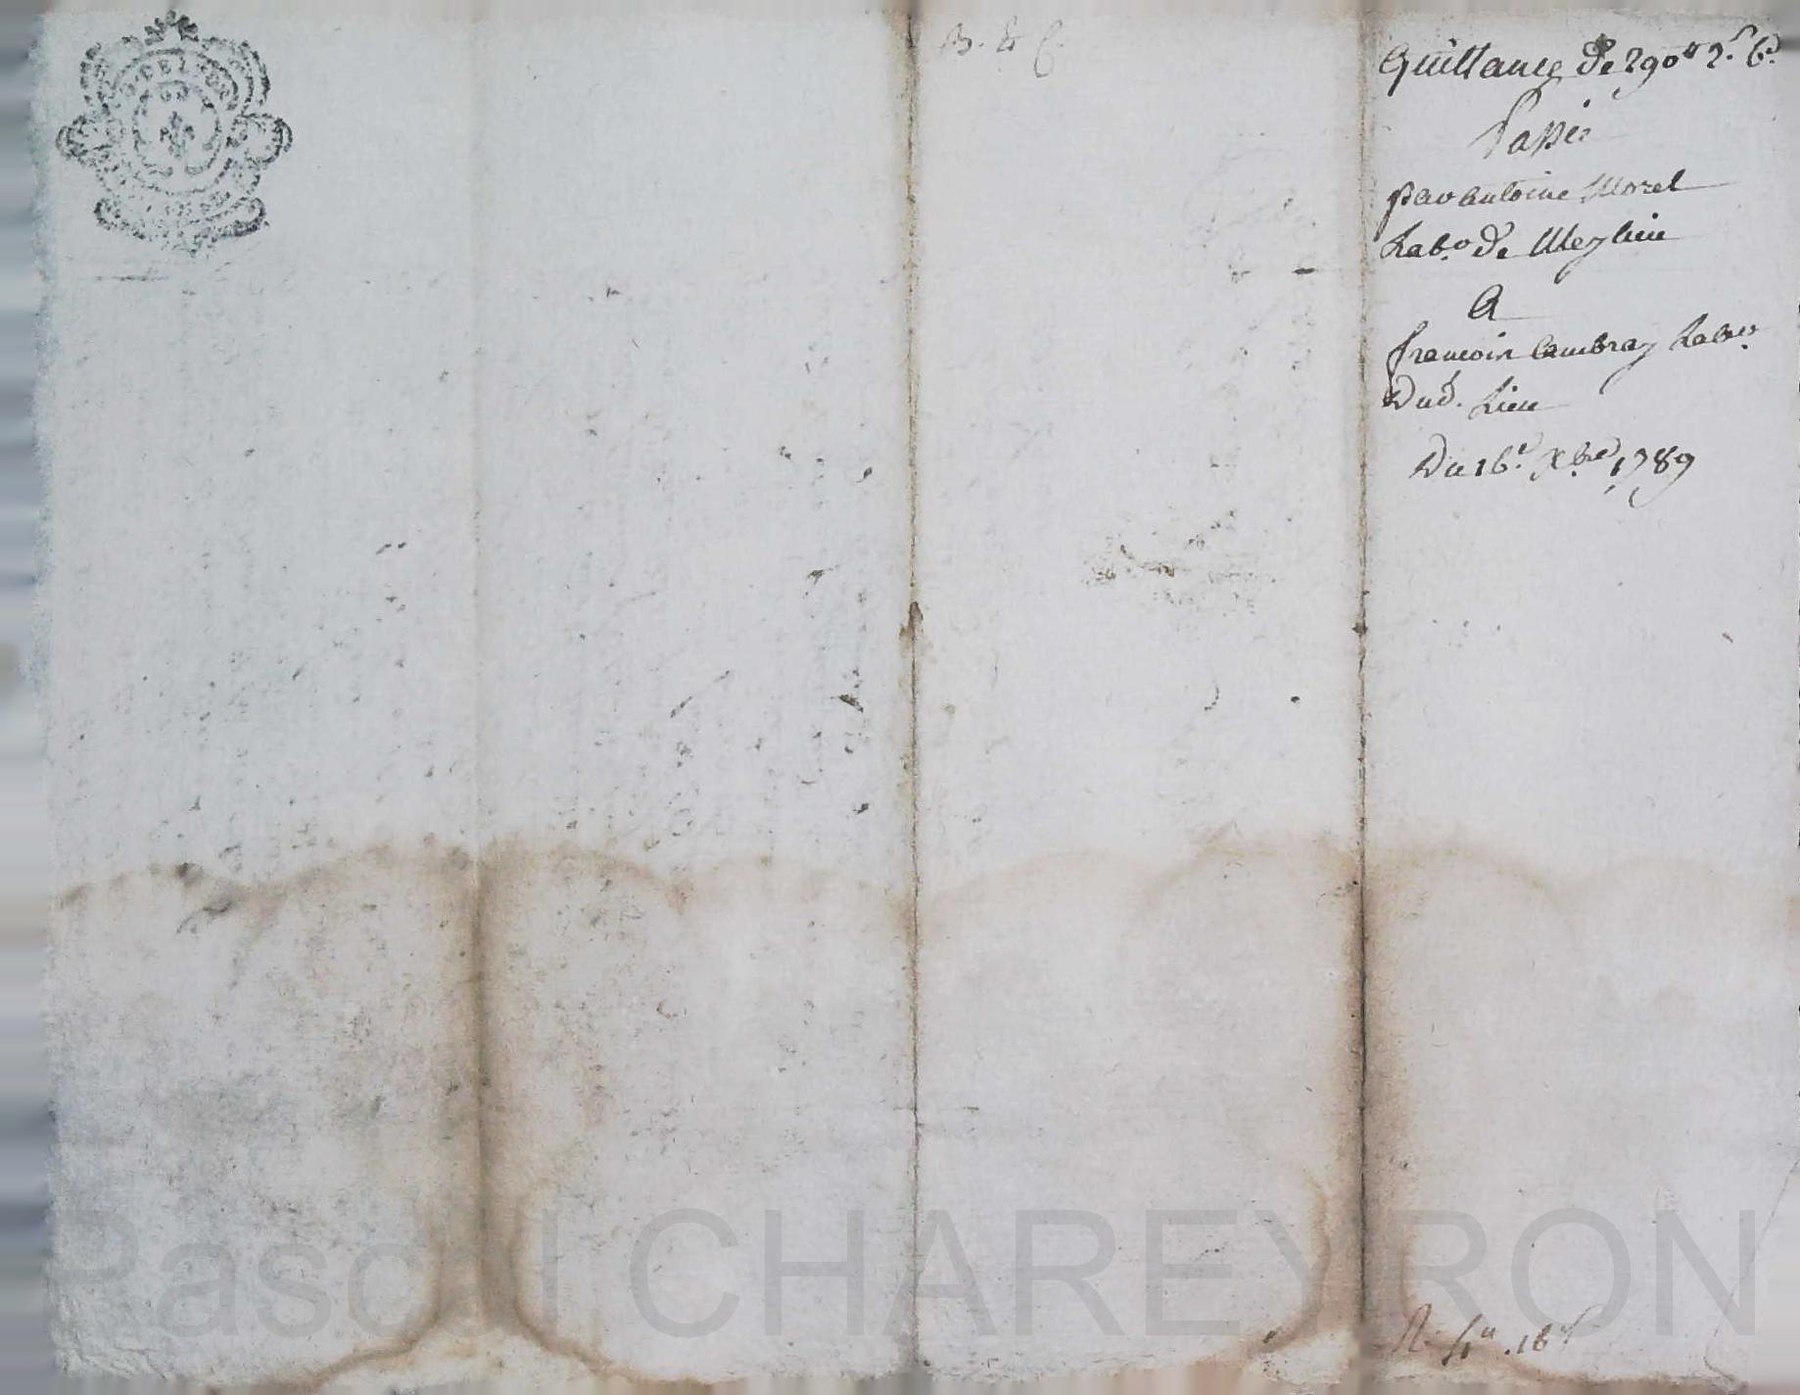 B. 4 6.
Quittance de 290# 2.s 6.d
Passée
par antoine Morel
Lab.r de Meylieu
A
francois Cambray Lab.r
Dud. Lieu
Du 16.e Xbre 1789
R. 4# .16s
Pascal CHAREYRON